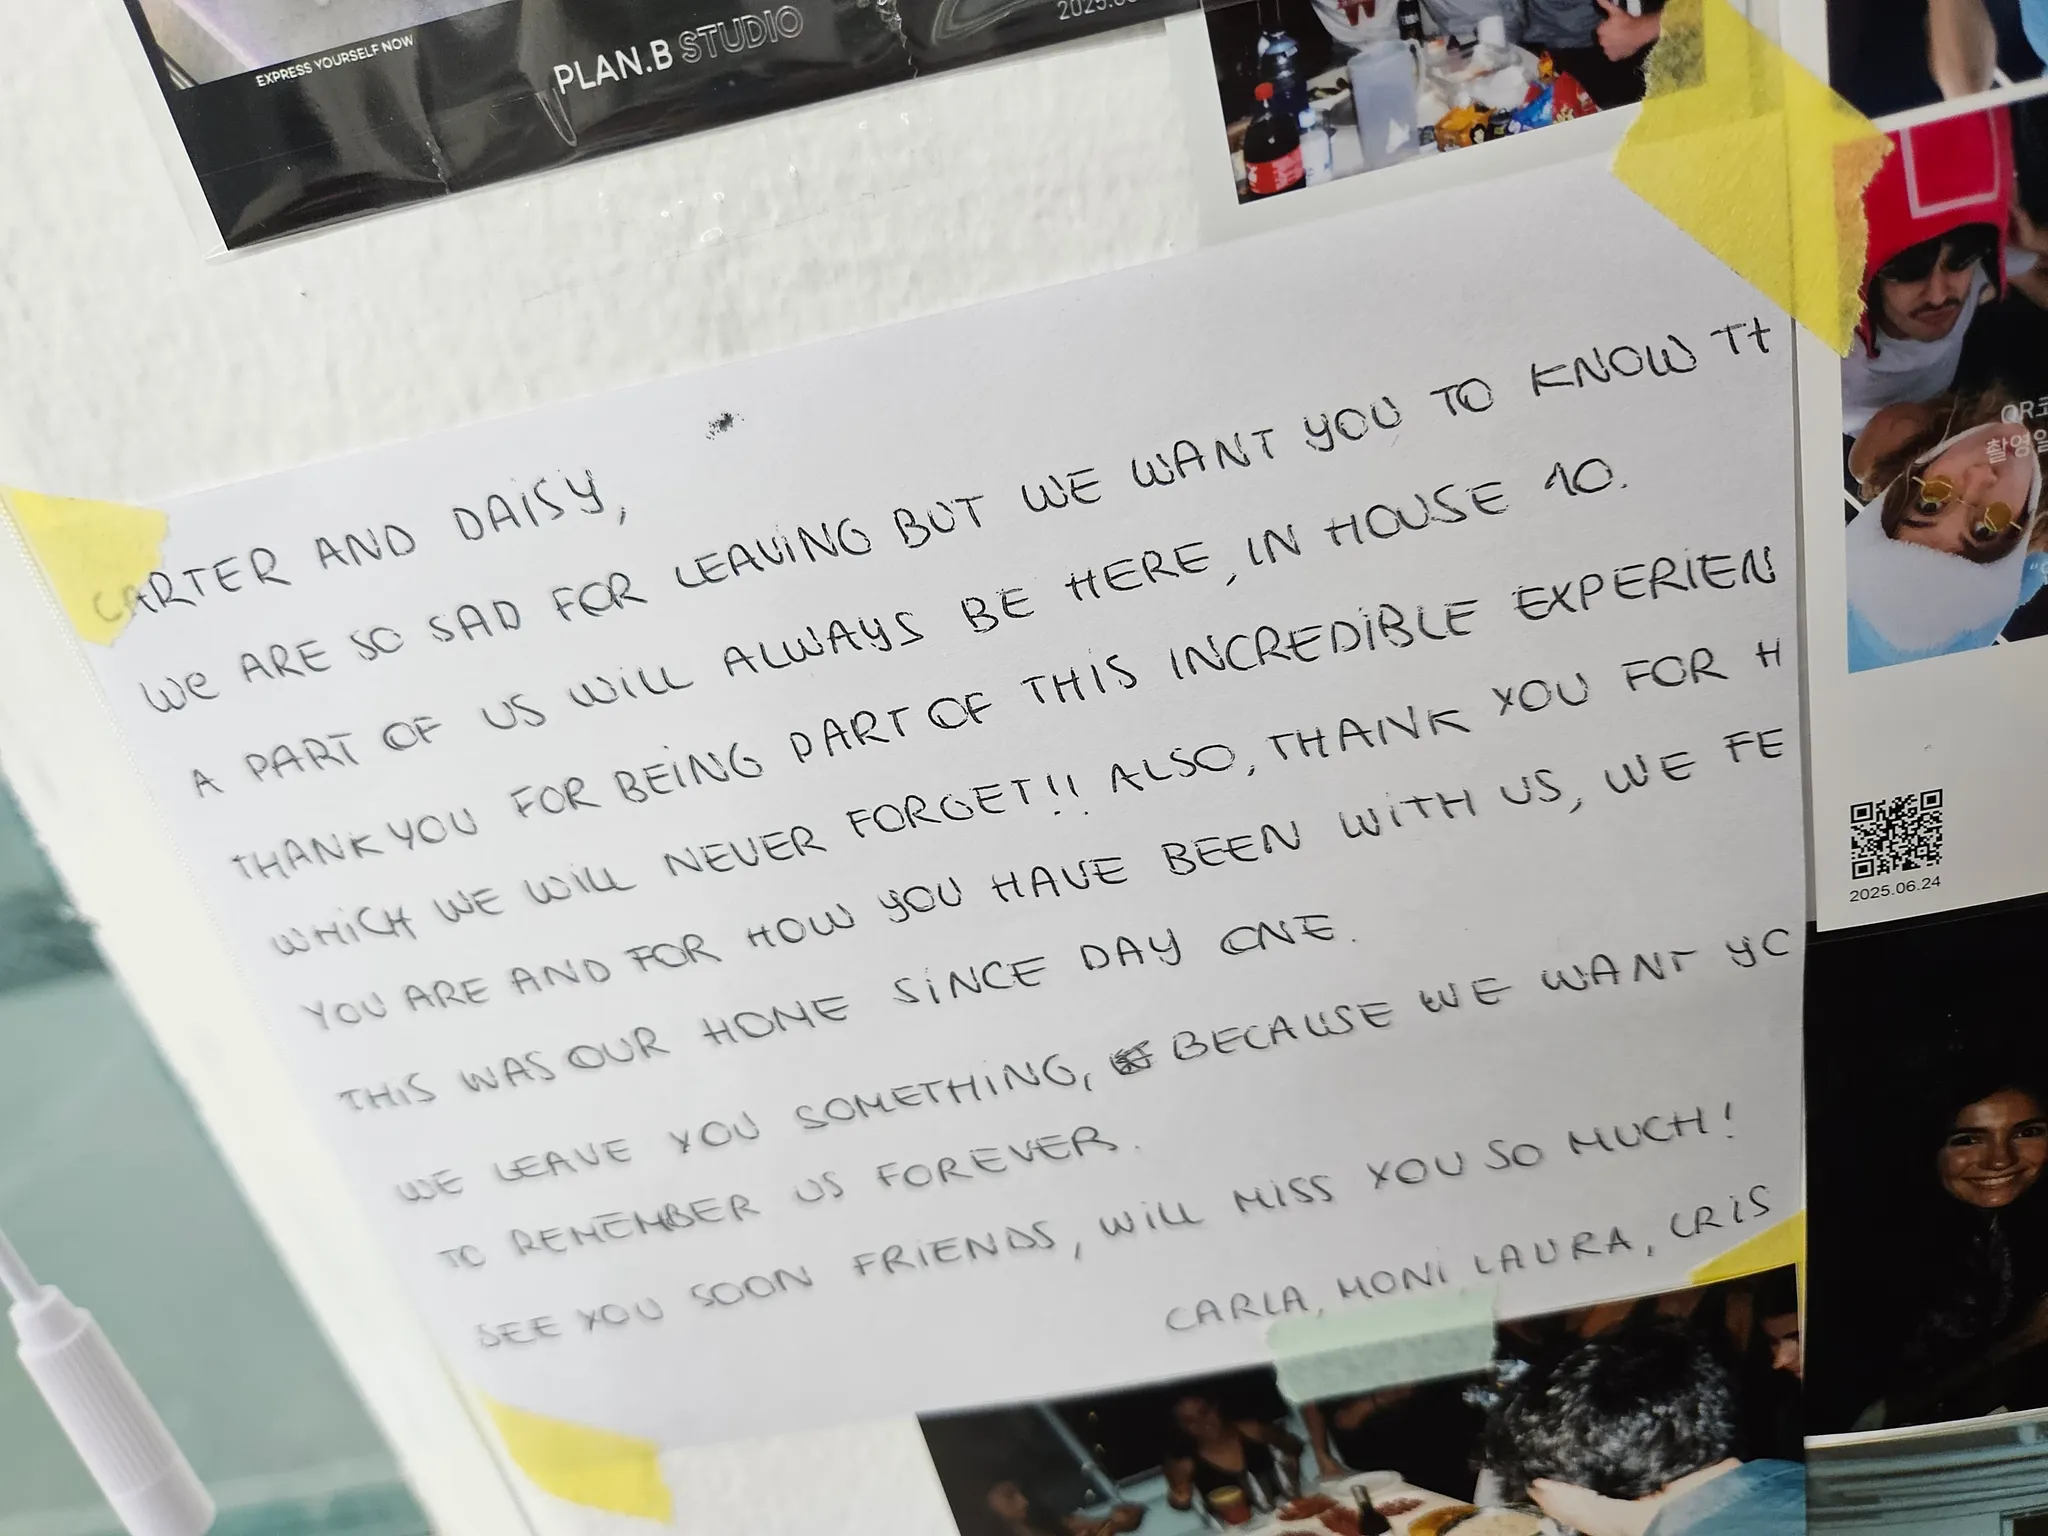 EXPRESS YOURSELF NOW
PLAN.B STUDIO
CARTER AND DAISY,
WE ARE SO SAD FOR LEAVING BUT WE WANT YOU TO KNOW TH
A PART OF US WILL ALWAYS BE HERE, IN HOUSE 10.
THANK YOU FOR BEING PART OF THIS INCREDIBLE EXPERIEN
WHICH WE WILL NEVER FORGET!! ALSO, THANK YOU FOR H
YOU ARE AND FOR HOW YOU HAVE BEEN WITH US, WE FE
THIS WAS OUR HOME SINCE DAY ONE.
WE LEAVE YOU SOMETHING, BECAUSE WE WANT YO
TO REMEMBER US FOREVER.
SEE YOU SOON FRIENDS, WILL MISS YOU SO MUCH!
CARLA, MONI, LAURA, CRIS
QR코
촬영일
2025.06.24